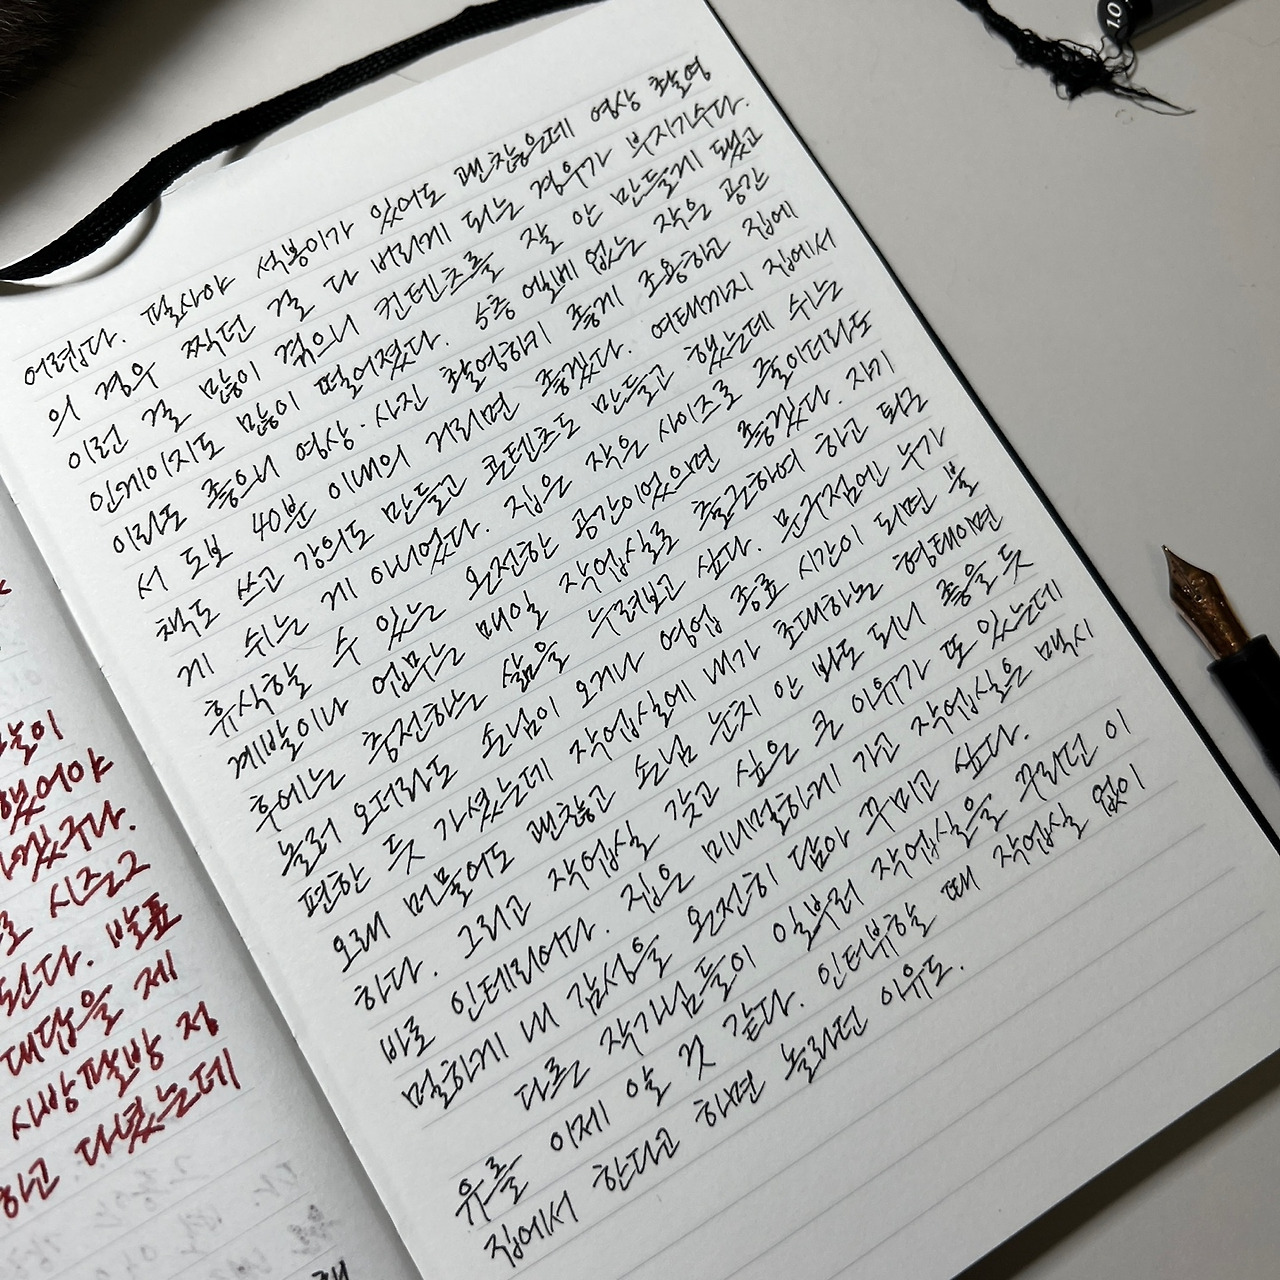 어렵다. 필사야 석봉이가 있어도 괜찮은데 영상 촬영
의 경우 찍던 걸 다 버리게 되는 경우가 부지기수다.
이런 걸 많이 겪으니 컨텐츠를 잘 안 만들게 됐고
인게이지도 많이 떨어졌다. 5층 엘베 없는 작은 공간
이라도 좋으니 영상·사진 촬영하기 좋게 조용하고 집에
서 도보 40분 이내의 거리면 좋겠다. 여태까지 집에서
책도 쓰고 강의도 만들고 콘텐츠도 만들고 했는데 쉬는
게 쉬는 게 아니었다. 집은 작은 사이즈로 줄이더라도
휴식할 수 있는 온전한 공간이었으면 좋겠다. 자기
계발이나 업무는 매일 작업실로 출근하여 하고 퇴근
후에는 충전하는 삶을 누려보고 싶다. 문구점에 누가
놀러 오더라도 손님이 오거나 영업 종료 시간이 되면 불
편한 듯 가셨는데 작업실에 내가 초대하는 형태이면
오래 머물어도 괜찮고 손님 눈치 안 봐도 되니 좋을 듯
하다. 그리고 작업실 갖고 싶은 큰 이유가 또 있는데
바로 인테리어다. 집은 미니멀하게 가고 작업실은 맥시
멀하게 내 감성을 온전히 담아 꾸미고 싶다.
다른 작가님들이 일부러 작업실을 꾸리던 이
유를 이제 알 것 같다. 인터뷰할 때 작업실 없이
집에서 한다고 하면 놀라던 이유도.
놀이
했어야
있구나.
시즌2
된다. 발표
대답을 제
시방필방 정
하고 다녔는데
1.0